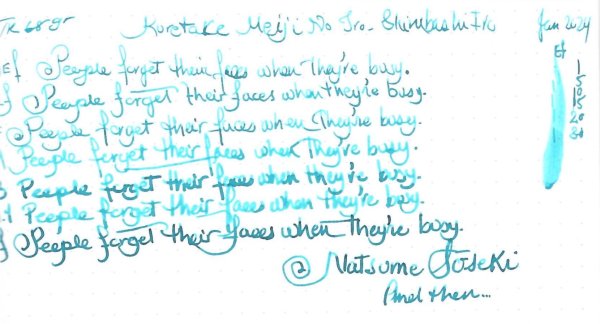 TR 68gr Kuretake Meiji No Iro- Shinbashi Iro Jan 2024
Ef
EF People forget their faces when they're busy.
F People forget their faces when they're busy.
People forget their faces when They're busy.
People forget their faces when They're busy.
B People forget their faces when they're busy.
People forget their faces when they're busy.
People forget their faces when They're busy.
1
5
10
15
20
30
Natsume Sōseki
And then...